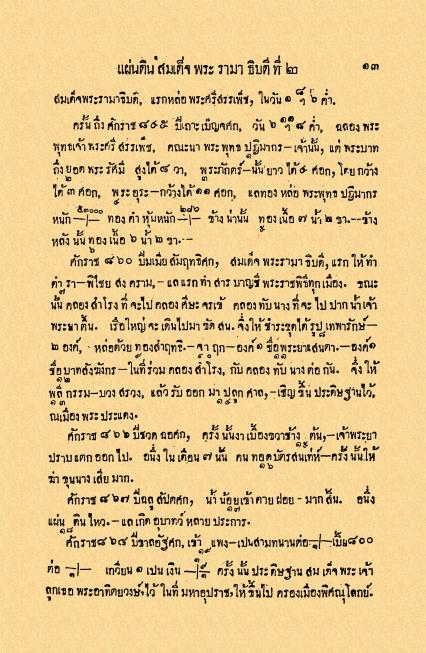 แผ่นดิน สมเด็จ พระ รามา ธิบดี ที่ ๒ ๑๓
สมเด็จพระรามาธิบดี, แรกหล่อ พระศรีสรรเพ็ช, ในวัน ๑ ๘ ๖ ค่ำ.
ครั้น ถึง ศักราช ๘๔๕ ปีเถาะเบ็ญจศก, วัน ๖ ๑๑ ๘ ค่ำ, ฉลอง พระ
พุทธเจ้า พระศรี สรรเพ็ช, คณะนา พระ พุทธ ปฏิมากร—เจ้านั้น, แต่ พระบาท
ถึง ยอด พระ รัศมี สูงได้ ๘ วา, พระภักตร์—นั้น ยาว ได้ ๔ ศอก, โดย กว้าง
ได้ ๓ ศอก, พระ อุระ—กว้างได้ ๑๑ ศอก, แลทอง หล่อ พระพุทธ ปฏิมากร
หนัก ๕๓๐๐๐ ทอง คำ หุ้มหนัก ๒๘๖ ข้าง น่านั้น ทอง เนื้อ ๗ น้ำ ๒ ขา.--ข้าง
หลัง นั้น ทอง เนื้อ ๖ น้ำ ๒ ขา.--
ศักราช ๘๖๐ ปีมเมีย สัมฤทธิศก, สมเด็จ พระรามา ธิบดี, แรก ให้ ทำ
ตำ รา—พิไชย สง คราม,—แล แรก ทำ สาร บาญชี พระราชพิธีทุก เมือง. ขณะ
นั้น คลอง สำโรง ที่ จะไป คลอง ศีษะ จรเข้ คลอง ทับ นาง ที่ จะ ไป ปาก น้ำ เจ้า
พระยา ตื้น. เรือใหญ่ จะ เดินไปมา ขัด สน. จึ่งให้ ชำระขุดได้ รูป เทพารักษ์—
๒ องค์, หล่อด้วย ทองสำฤทธิ—จา ฤก—องค์ ๑ ชื่อพระยาแสนตา.—องค์ ๑
ชื่อบาทสังฆังกร—ในที่ร่วม คลอง สำโรง, กับ คลอง ทับ นาง ต่อ กัน. จึ่ง ให้
พลี กรรม—บวง สรวง, แล้ว รับ ออก มา ปลูก ศาล,—เชิญ ขึ้น ประดิษฐานไว้.
ณเมือง พระ ประแดง.
ศักราช ๘๖๖ ปีชวด ฉอศก, ครั้ง นั้นงา เบื้องขวาช้าง ต้น,—เจ้าพระยา
ปราบ แตก ออก ไป. อนึ่ง ใน เดือน ๗ นั้น คน ทอด บัตรสนเท่ห์—ครั้ง นั้น ให้
ฆ่า ขุนนาง เสีย มาก.
ศักราช ๘๖๗ ปีฉลู สัปตศก, น้ำ น้อย เข้า ตาย ฝอย - มาก สิ้น. อนึ่ง
แผ่น ดิน ไหว.—แล เกิด อุบาทว์ หลาย ประการ.
ศักราช ๘๖๘ ปีขาลอัฐศก, เข้า แพง—เปนสามทนานต่อ เบี้ย ๘๐๐
ต่อ เกวียน ๑ เปน เงิน ครั้ง นั้น ประ ดิษฐาน สม เด็จ พระ เจ้า
ลูกเธอ พระอาทิตยวงษ์, ไว้ ในที่ มหาอุปราช, ให้ ขึ้นไป ครองเมืองพิศณุโลกย์.